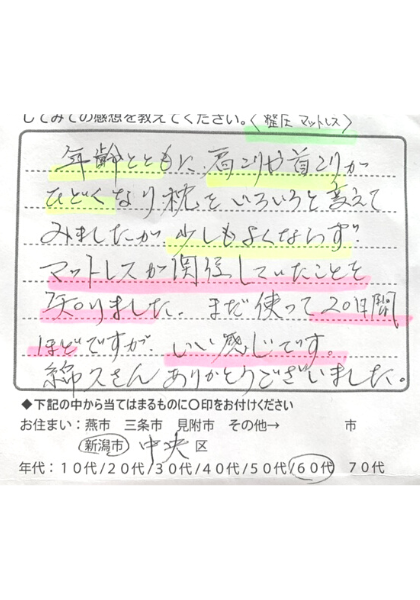 してみての感想を教えてください。〈整圧マットレス〉
年齢とともに、肩こりや首こりが
ひどくなり枕をいろいろと変えて
みましたが、少しもよくならず
マットレスが関係していたことを
知りました。まだ使って20日間
ほどですが、いい感じです。
綿久さんありがとうございました。
◆下記の中から当てはまるものに○印をお付けください
お住まい：燕市 三条市 見附市 その他→ 市
新潟市 中央 区
年代：10代/20代/30代/40代/50代/60代 70代